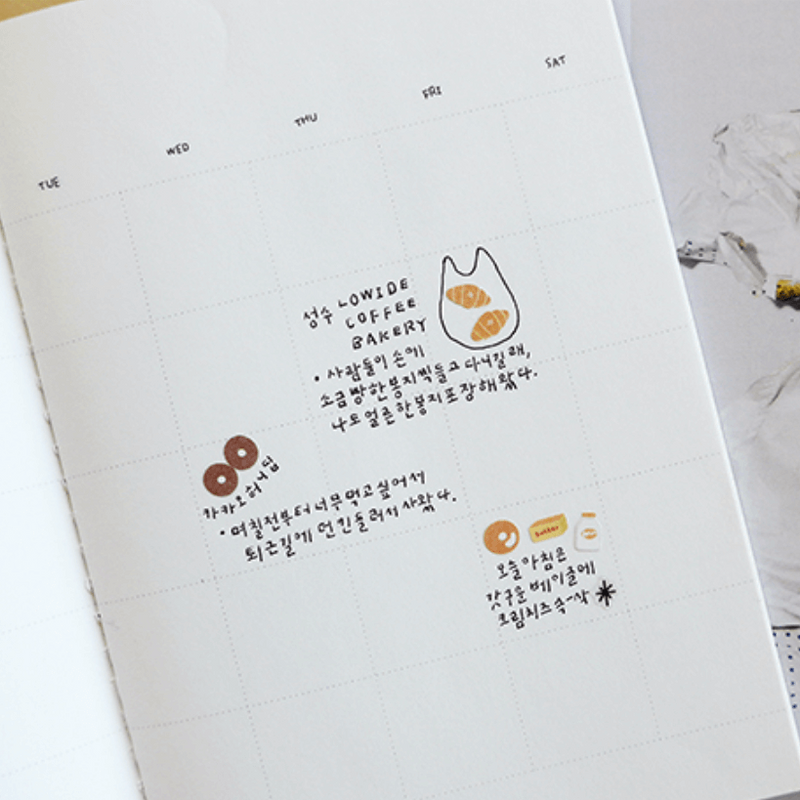 TUE
WED
THU
FRI
SAT
성수 LOWIDE
COFFEE
BAKERY
• 사람들이 손에
소금빵한봉지씩들고 다니길래,
나도 얼른한봉지포장해왔다.
카카오허니딥
• 며칠전부터 너무먹고싶어서
퇴근길에 던킨들러서 사왔다.
butter
오늘아침은
갓구운 베이글에
크림치즈 슥-삭